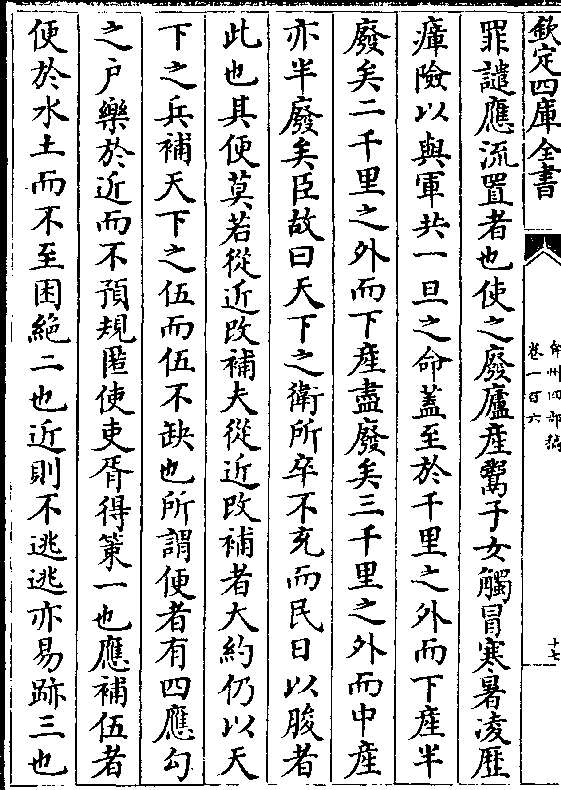 欽定四庫全書
弇州四部稿
卷一百六
十七
罪譴應流置者也使之廢廬産鬻子女觸冒寒暑凌歴
瘴險以與軍共一旦之命蓋至於千里之外而下産半
廢矣二千里之外而下産盡廢矣三千里之外而中産
亦半廢矣臣故曰天下之衛所卒不充而民日以朘者
此也其便莫若從近改補夫從近改補者大約仍以天
下之兵補天下之伍而伍不缺也所謂便者有四應勾
之户樂於近而不預規匿使吏胥得策一也應補伍者
便於水土而不至困絶二也近則不逃逃亦易跡三也